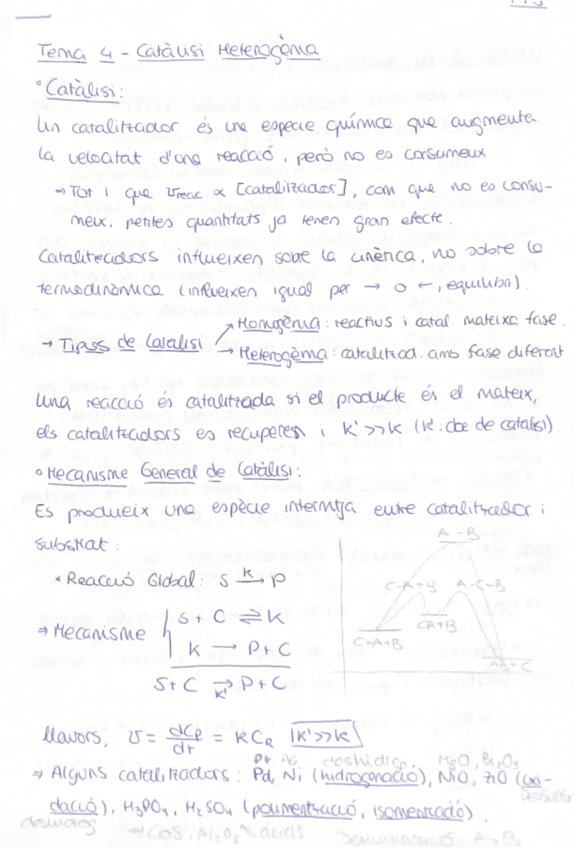 Tema 4 - Catàlisi Heterogènia
• Catàlisi:
Un catalitzador és una espècie química que augmenta
la velocitat d'una reacció, però no es consumeix
⇒ Tot i que vreac ∝ [catalitzador], com que no es consu-
meix, petites quantitats ja tenen gran efecte.
Catalitzadors influeixen sobre la cinètica, no sobre la
termodinàmica (influeixen igual per → o ←, equilibri).
→ Tipus de Catàlisi
Homogènia: reactius i catal. mateixa fase.
Heterogènia: catalitzad. amb fase diferent
Una reacció és catalitzada si el producte és el mateix,
els catalitzadors es recuperen i k'>>k (k': cte de catàlisi).
• Mecanisme General de Catàlisi:
Es produeix una espècie intermitja entre catalitzador i
substrat:
• Reacció Global: S —k→ P
⇒ Mecanisme
S + C ⇌ K
K → P + C
S + C →k' P + C
A-B
C-A+B A-C-B
C+A+B CA+B AB+C
Llavors, v = dCp/dt = kCR k'>>k
Pt Ag MgO, Bi2O3
⇒ Alguns catalitzadors: Pd, Ni (hidrogenació), NiO, ZnO (oxi-
dació), H3PO4, H2SO4 (polimerització, isomerizació).
→ CoS, Al2O3 àcids